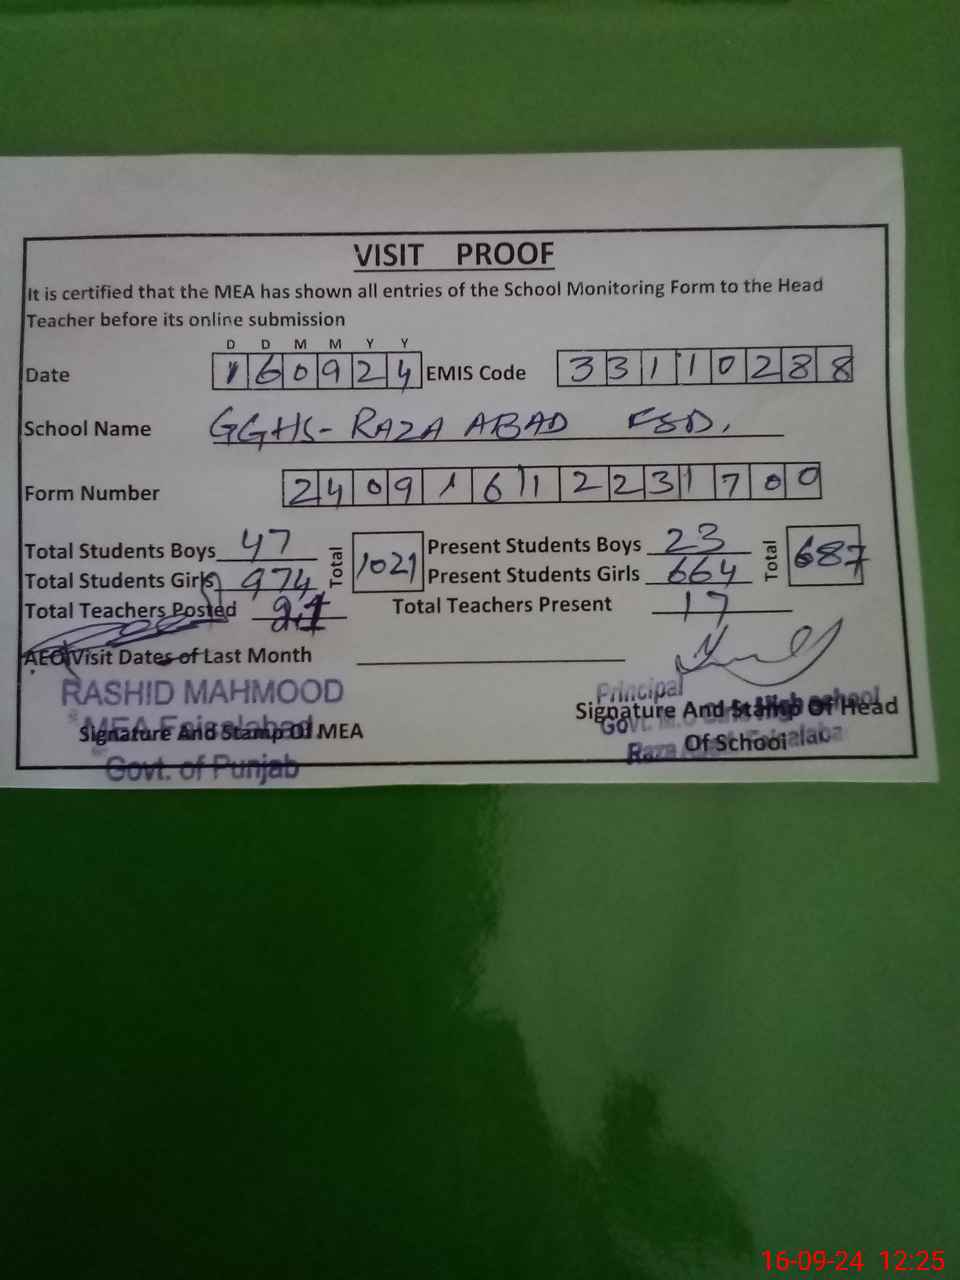 VISIT PROOF
It is certified that the MEA has shown all entries of the School Monitoring Form to the Head
Teacher before its online submission
D D M M Y Y
Date 160924 EMIS Code 33110288
School Name GGHS- RAZA ABAD FSD.
Form Number 24091612231700
Total Students Boys 47 Total 1021 Present Students Boys 23 Total 687
Total Students Girls 974 Present Students Girls 664
Total Teachers Posted 21 Total Teachers Present 17
AEO Visit Dates of Last Month
RASHID MAHMOOD
MEA Faisalabad
Signature And Stamp Of MEA
Govt. of Punjab
Principal
Signature And Stamp Of Head
Of School
16-09-24 12:25